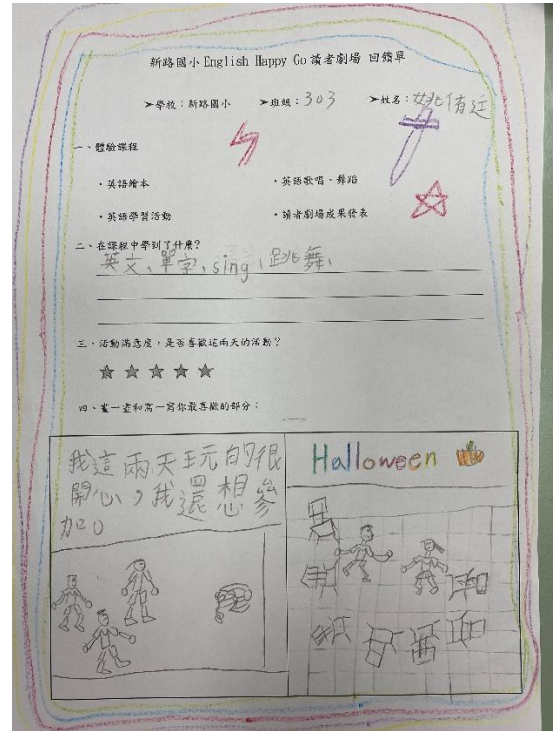 新路國小 English Happy Go 讀者劇場 回饋單
➤學校：新路國小 ➤班級：303 ➤姓名：姚侑廷
一、體驗課程
·英語繪本 ·英語歌唱、舞蹈
·英語學習活動 ·讀者劇場成果發表
二、在課程中學到了什麼?
英文、單字、sing、跳舞、
三、活動滿意度，是否喜歡這兩天的活動？
四、畫一畫和寫一寫你最喜歡的部分：
我這兩天玩的很
開心，我還想參
加。
Halloween